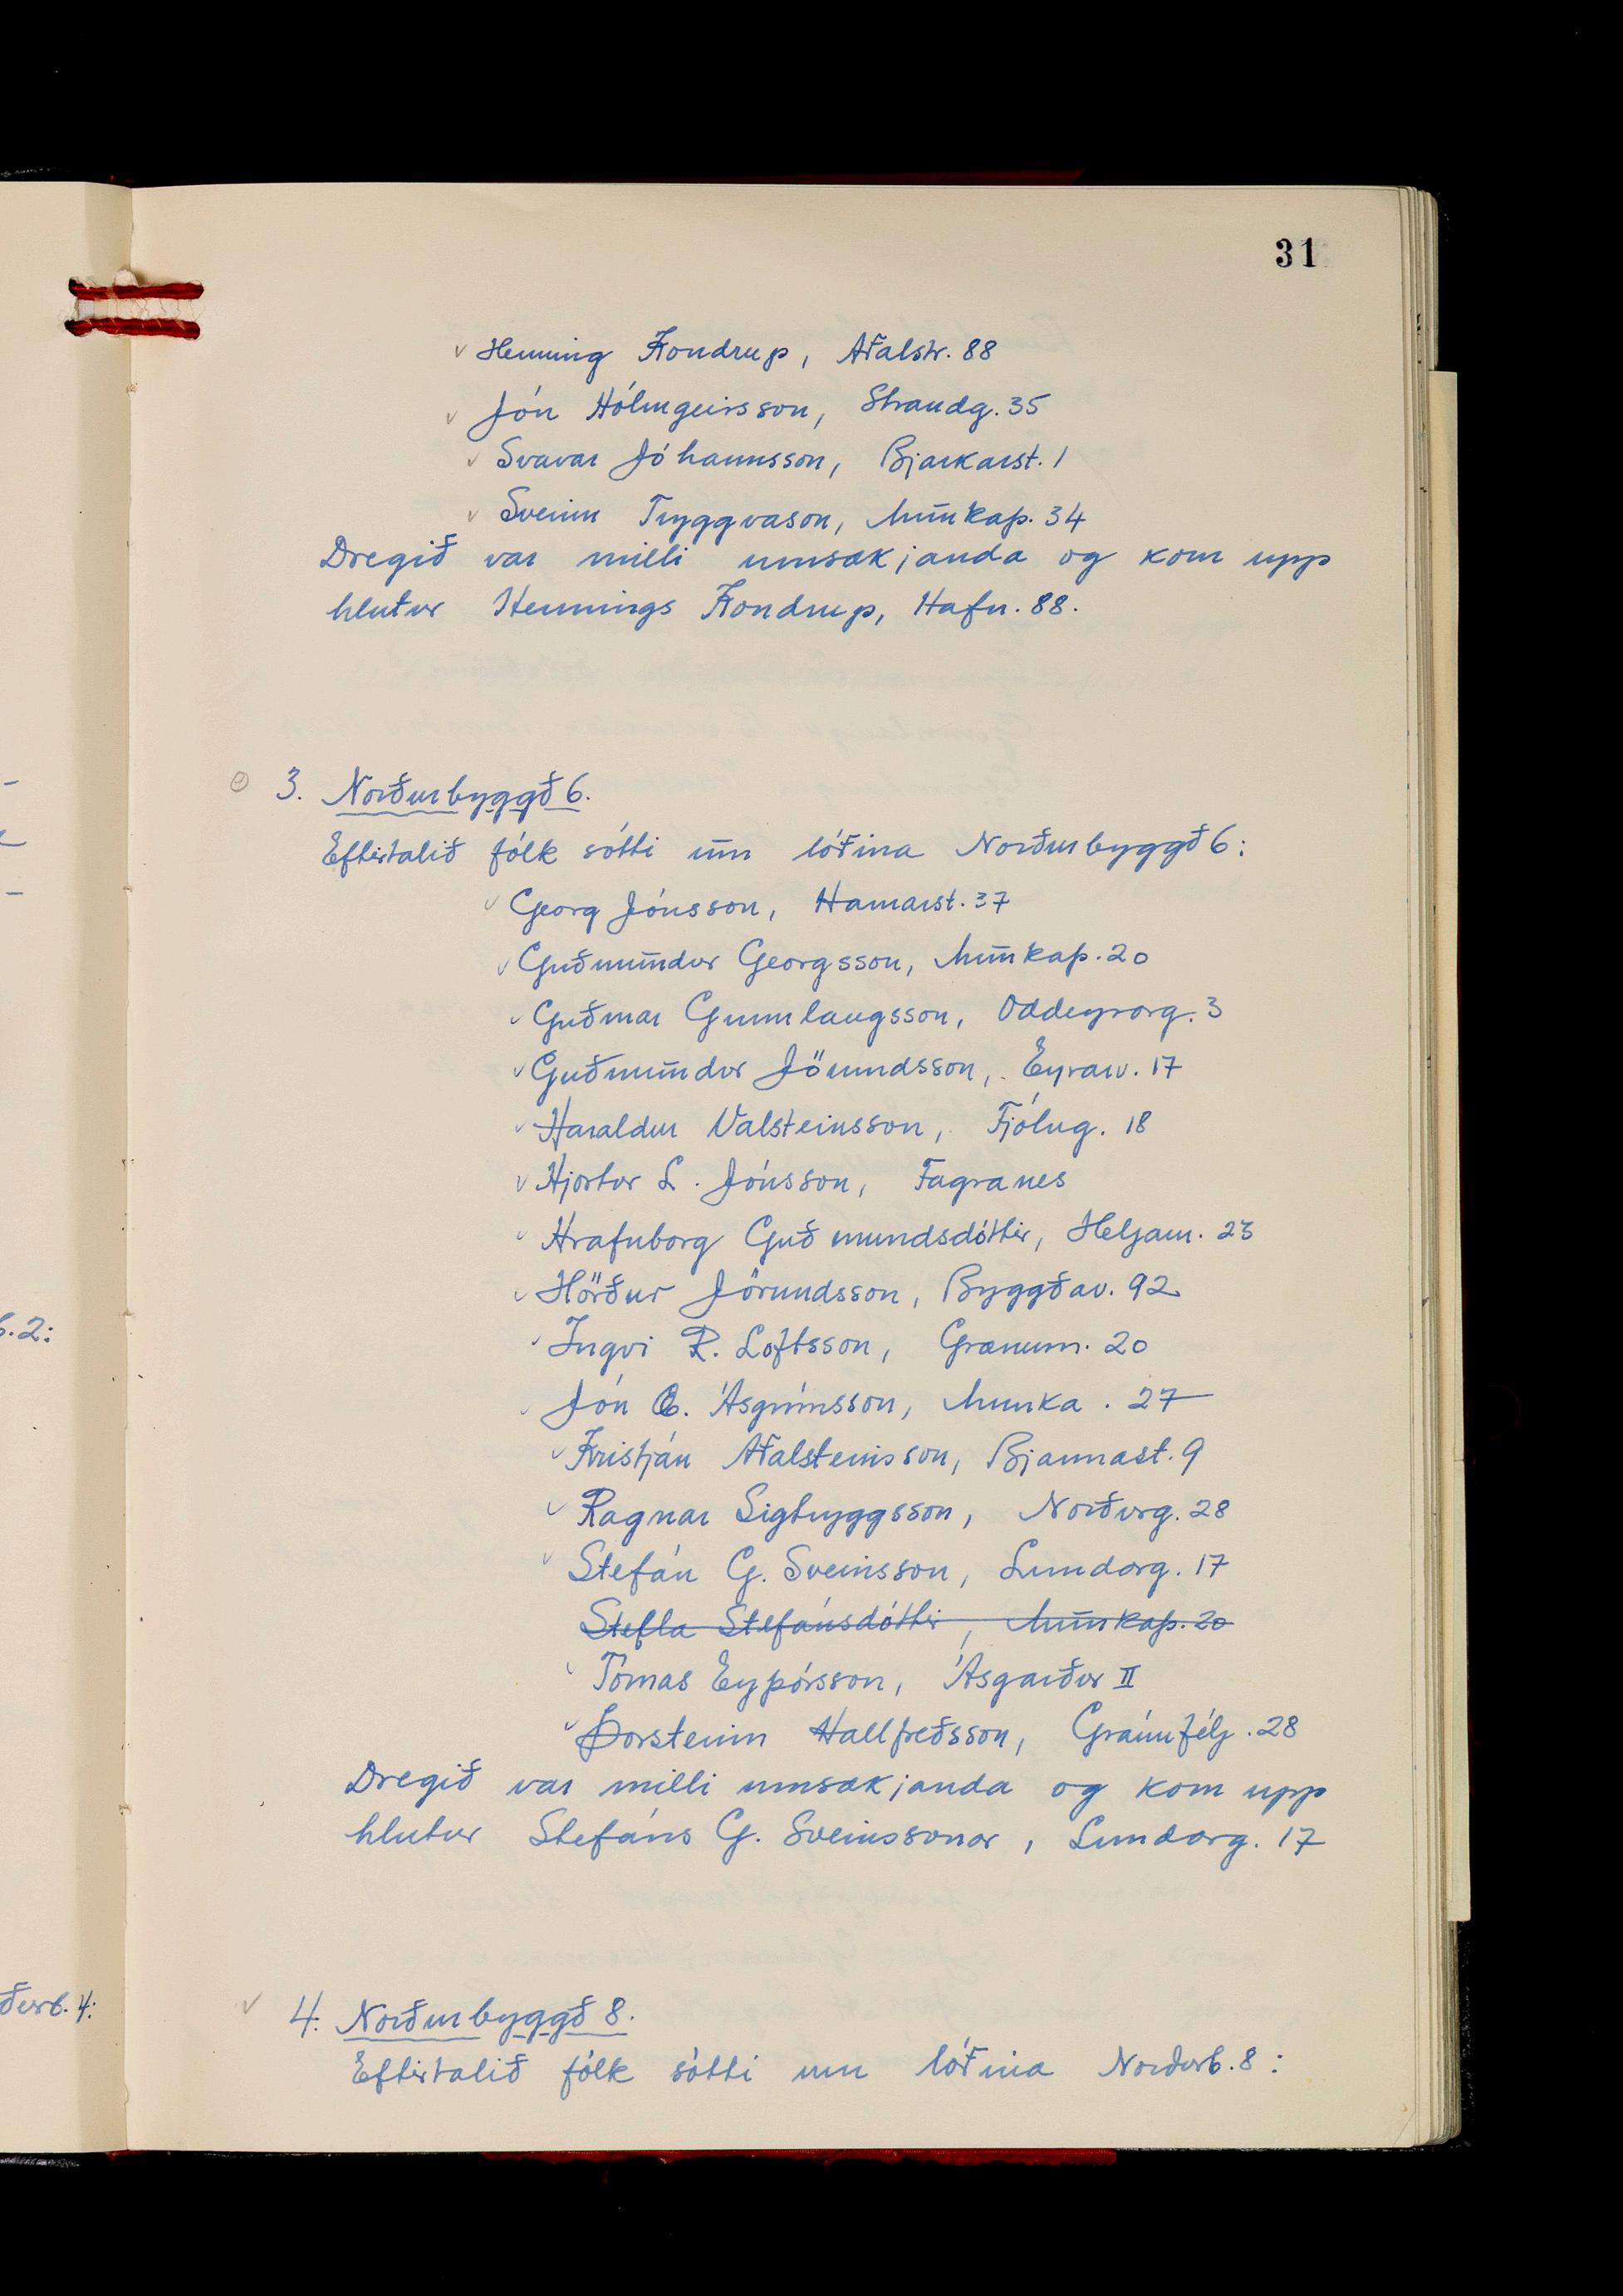 31
✓ Henning Kondrup, Aðalstr. 88
✓ Jón Hólmgeirsson, Strandg. 35
✓ Svavar Jóhannsson, Bjarkarst. 1
✓ Sveinn Tryggvason, Munkaþ. 34
Dregið var milli umsækjanda og kom upp
hlutur Hennings Kondrup, Hafn. 88.
3. Norðurbyggð 6.
Eftirtalið fólk sótti um lóðina Norðurbyggð 6:
✓ Georg Jónsson, Hamarst. 37
✓ Guðmundur Georgsson, Munkaþ. 20
✓ Guðmar Gunnlaugsson, Oddeyrarg. 3
✓ Guðmundur Jörundsson, Eyrarv. 17
✓ Haraldur Valsteinsson, Fjólug. 18
✓ Hjörtur L. Jónsson, Fagranes
✓ Hrafnborg Guðmundsdóttir, Helgam. 23
✓ Hörður Jörundsson, Byggðav. 92
✓ Ingvi R. Loftsson, Grænum. 20
✓ Jón Ásgrímsson, Munka. 27
✓ Kristján Aðalsteinsson, Bjarmast. 9
✓ Ragnar Sigtryggsson, Norðurg. 28
✓ Stefán G. Sveinsson, Lundarg. 17
Stefla Stefánsdóttir, Munkaþ. 20
✓ Tómas Eyþórsson, Ásgarður II
✓ Þorsteinn Hallfreðsson, Gránufélg. 28
Dregið var milli umsækjanda og kom upp
hlutur Stefáns G. Sveinssonar, Lundarg. 17
✓ 4. Norðurbyggð 8.
Eftirtalið fólk sótti um lóðina Norðurb. 8:
b. 2:
ðurb. 4: